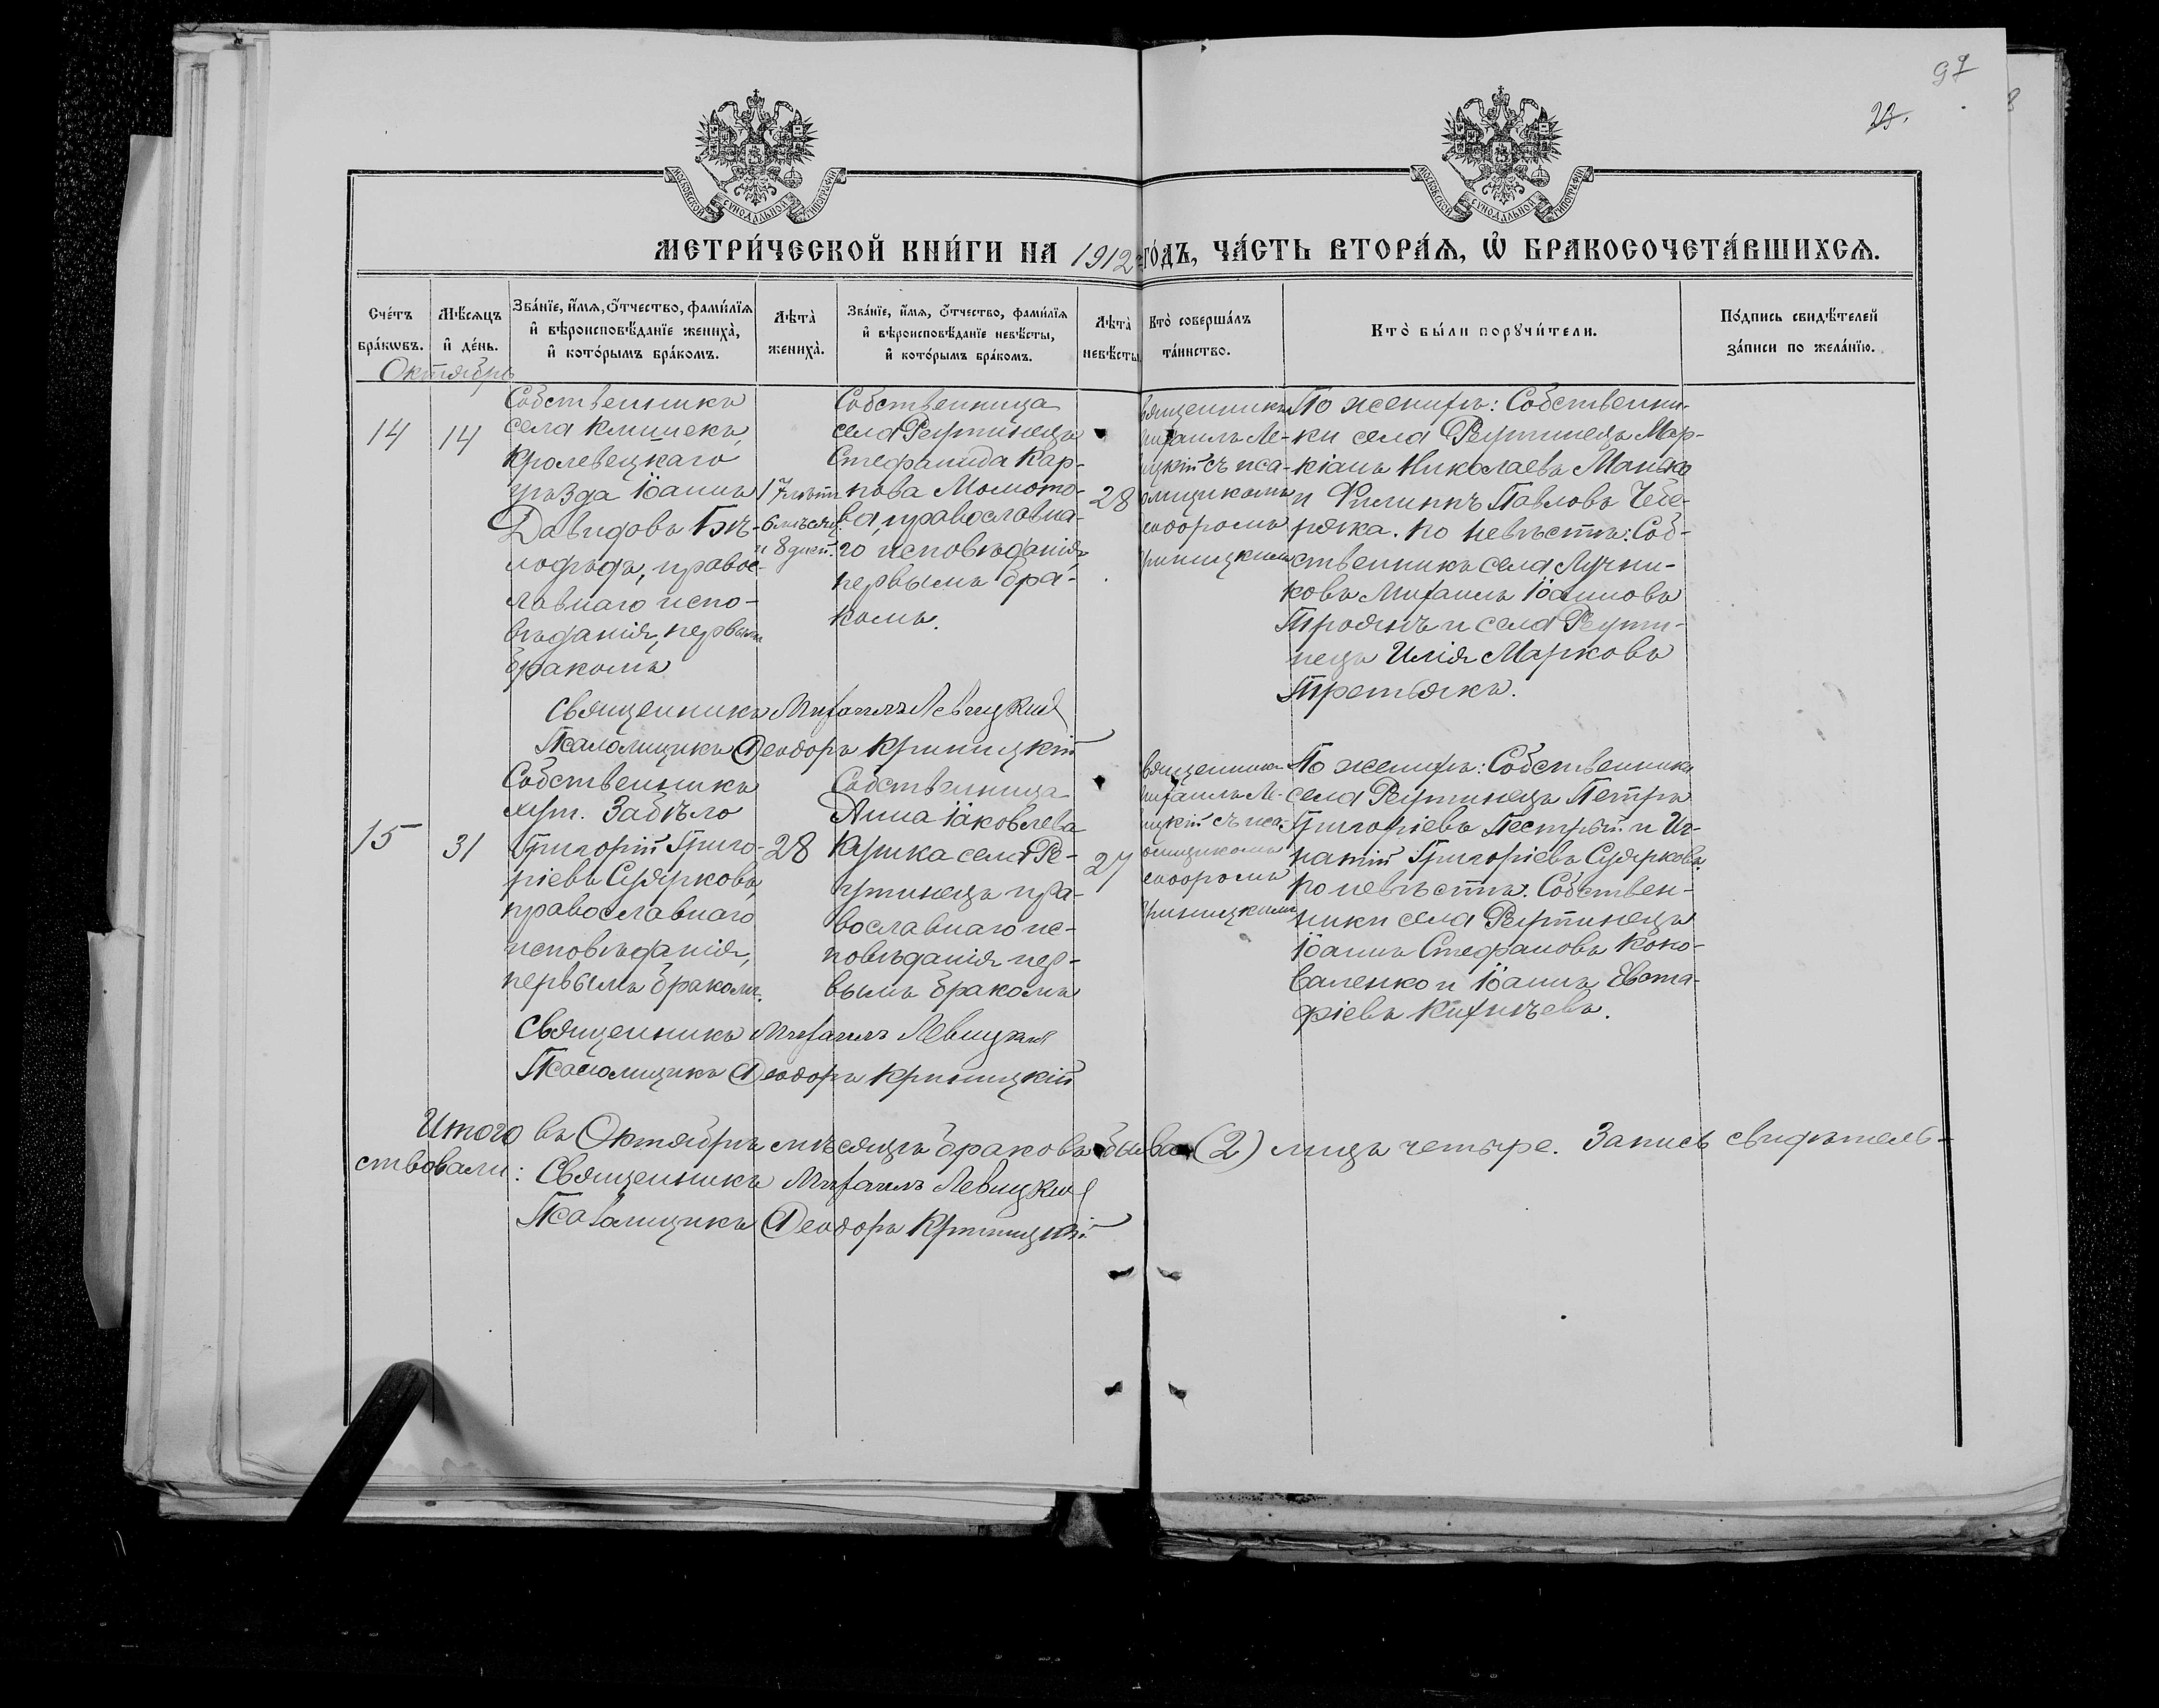 97
23.
МОСКОВСКОЙ СѴНОДАЛЬНОЙ ТИПОГРАФІИ
МОСКОВСКОЙ СѴНОДАЛЬНОЙ ТИПОГРАФІИ
МЕТРИ́ЧЕСКОЙ КНИ́ГИ НА 1912 ГО́ДЪ, ЧА́СТЬ ВТОРА́Ѧ, Ѽ БРАКОСОЧЕТА́ВШИХСѦ.
Сче́тъ бра́кѡвъ.
Мѣ́сѧцъ и҆ де́нь.
Зва́нїе, и҆́мѧ, ѻ҆́тчество, фами́лїѧ и҆ вѣроисповѣ́данїе жениха̀, и҆ кото́рымъ бра́комъ.
Лѣта̀ жениха̀.
Зва́нїе, и҆́мѧ, ѻ҆́тчество, фами́лїѧ и҆ вѣроисповѣ́данїе невѣ́сты, и҆ кото́рымъ бра́комъ.
Лѣта̀ невѣ́сты.
Кто̀ соверша́лъ та́инство.
Кто̀ бы́ли порꙋчи́тели.
По́дпись свидѣ́телей за́писи по жела́нїю.
Октябрь
14
14
Собственникъ
села Клишекъ,
Кролевецкаго
уѣзда Іоаннъ
Давидовъ Бѣ-
лодѣдъ, правос-
лавнаго испо-
вѣданія, первымъ
бракомъ
17 лѣтъ
6 мѣсяц.
и 8 дней.
Собственница
села Реутинецъ
Стефанида Кар-
пова Момото-
ва, православна-
го исповѣданія,
первымъ бра-
комъ.
28
вященникъ
ихаилъ Ле-
ицкій съ пса-
омщикомъ
еодоромъ
риницкимъ
По женихѣ: Собственни-
ки села Реутинецъ Мар-
кіанъ Николаевъ Манько
и Филиппъ Павловъ Чебе-
ряка. По невѣстѣ: Соб-
ственникъ села Лучни-
ковъ Михаилъ Іоанновъ
Троянъ и села Реути-
нецъ Илія Марковъ
Третьякъ.
Священникъ Михаилъ Левицкій
Псаломщикъ Ѳеодоръ Криницкій
15
31
Собственникъ
хут. Забѣло
Григорій Григо-
ріевъ Сударковъ,
православнаго
исповѣданія,
первымъ бракомъ.
28
Собственница
Анна Іаковлева
села Ре-
утинецъ пра-
вославнаго ис-
повѣданія пер-
вымъ бракомъ
27
вященникъ
ихаилъ Ле-
ицкій съ пса-
омщикомъ
еодоромъ
риницкимъ
По женихѣ: Собственники
села Реутинецъ Петръ
Григоріевъ Пестрый и Иг-
натій Григоріевъ Сударковъ.
По невѣстѣ: Собствен-
ники села Реутинецъ
Іоаннъ Стефановъ Коно-
валенко и Іоаннъ Евста-
фіевъ Кихичевъ.
Священникъ Михаилъ Левицкій
Псаломщикъ Ѳеодоръ Криницкій
Итого въ Октябрѣ мѣсяцѣ браковъ два (2) лицъ четыре. Запись свидѣтель-
ствовали: Священникъ Михаилъ Левицкій
Псаломщикъ Ѳеодоръ Криницкій